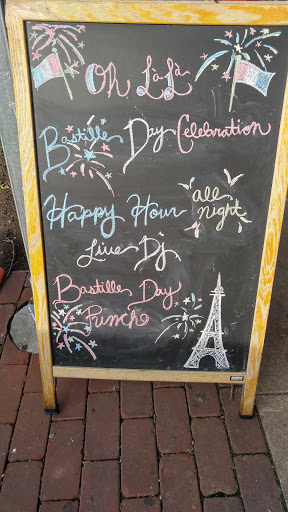 Oh LàLà
Bastille Day Celebration
Happy Hour all night
Live Dj
Bastille Day
Punch